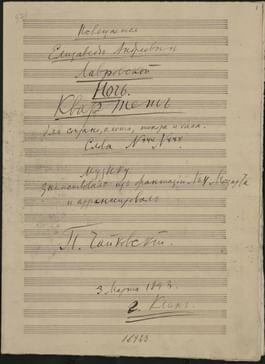 Посвящается
Елизавете Андреевне
Лавровской
Ночь.
Квартетъ
для сопрано, альта, тенора и баса.
Слова N*** N***
Музыку
заимствовалъ изъ фантазiи №4 Моцарта
и аранжировалъ
П. Чайковскiй.
3 Марта 1893
г. Клинъ.